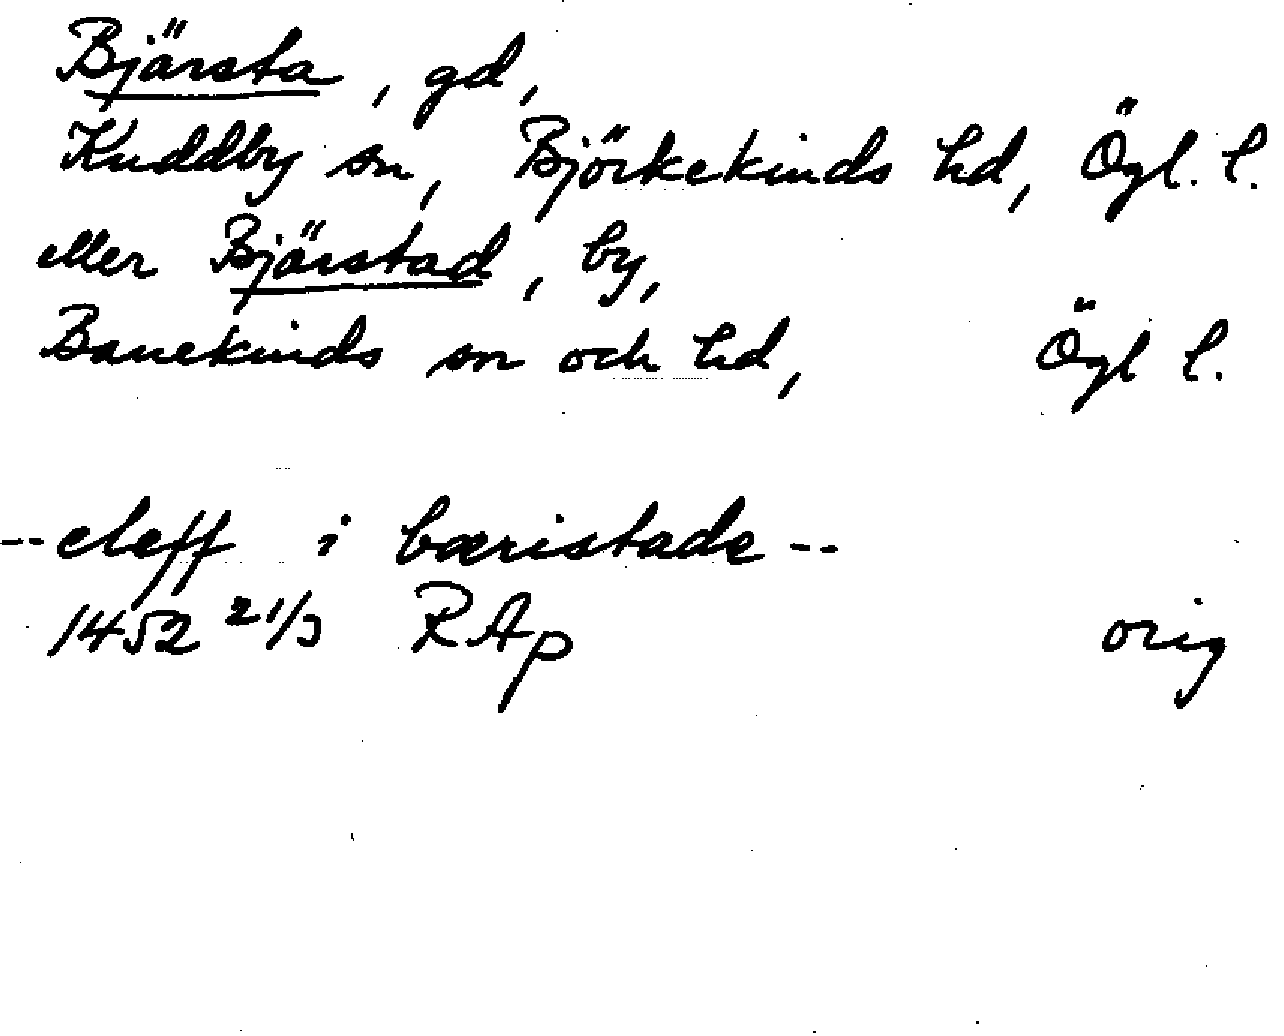 Bjärsta, gd,
Kuddby sn, Björkekinds hd, Ögl. l.
eller Bjärstad, by,
Banekinds sn och hd, Ögl l.
-- eleff i bæristade --
1452 21/3 RAp orig